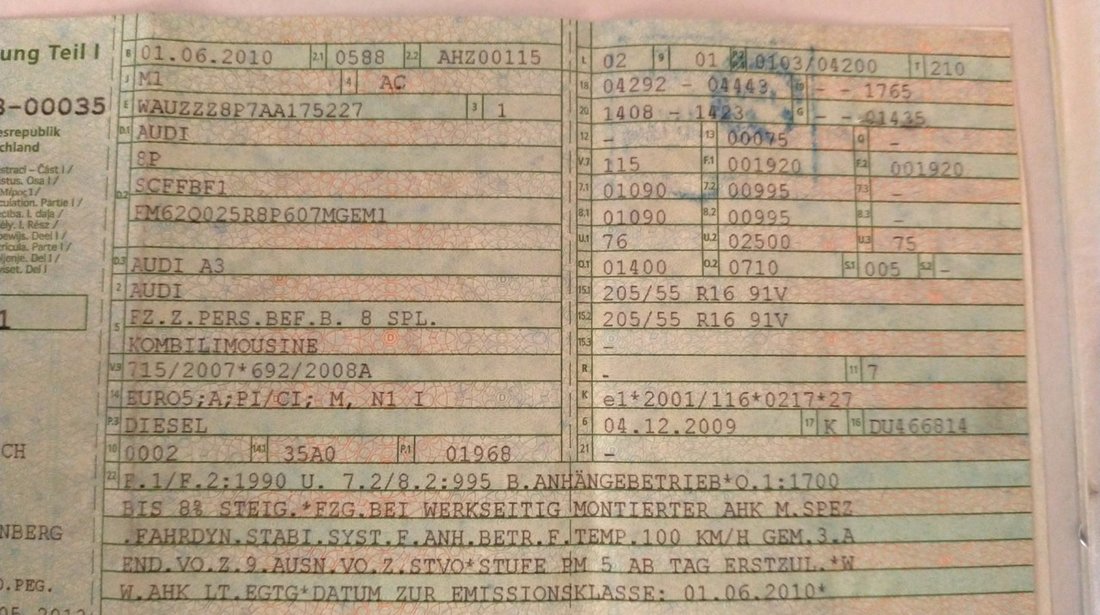 ung Teil I
B 01.06.2010 2.1 0588 2.2 AHZ00115
J M1 4 AC
-00035
E WAUZZZ8P7AA175227 3 1
esrepublik
D.1 AUDI
chland
8P
D.2 SCFFBF1
FM62Q025R8P607MGEM1
D.3 AUDI A3
2 AUDI
5 FZ.Z.PERS.BEF.B. 8 SPL.
KOMBILIMOUSINE
V.9 715/2007*692/2008A
14 EURO5;A;PI/CI; M, N1 I
P.3 DIESEL
10 0002 14.1 35A0 P.1 01968
L 02 9 01 0103/04200 T 210
18 04292 - 04443 19 - - 1765
20 1408 - 1423 G - - 01435
12 - 13 00075 Q -
V.7 115 F.1 001920 F.2 001920
7.1 01090 7.2 00995 7.3
8.1 01090 8.2 00995 8.3 -
U.1 76 U.2 02500 U.3 75
O.1 01400 O.2 0710 S.1 005 S.2 -
15.1 205/55 R16 91V
15.2 205/55 R16 91V
15.3 -
R - 11 7
K e1*2001/116*0217*27
6 04.12.2009 17 K 16 DU466814
21 -
22 F.1/F.2:1990 U. 7.2/8.2:995 B.ANHÄNGEBETRIEB*O.1:1700
BIS 8% STEIG.*FZG.BEI WERKSEITIG MONTIERTER AHK M.SPEZ
.FAHRDYN.STABI.SYST.F.ANH.BETR.F.TEMP.100 KM/H GEM.3.A
END.VO.Z.9.AUSN.VO.Z.STVO*STUFE PM 5 AB TAG ERSTZUL.*W
W.AHK LT.EGTG*DATUM ZUR EMISSIONSKLASSE: 01.06.2010*
CH
NBERG
.PEG.